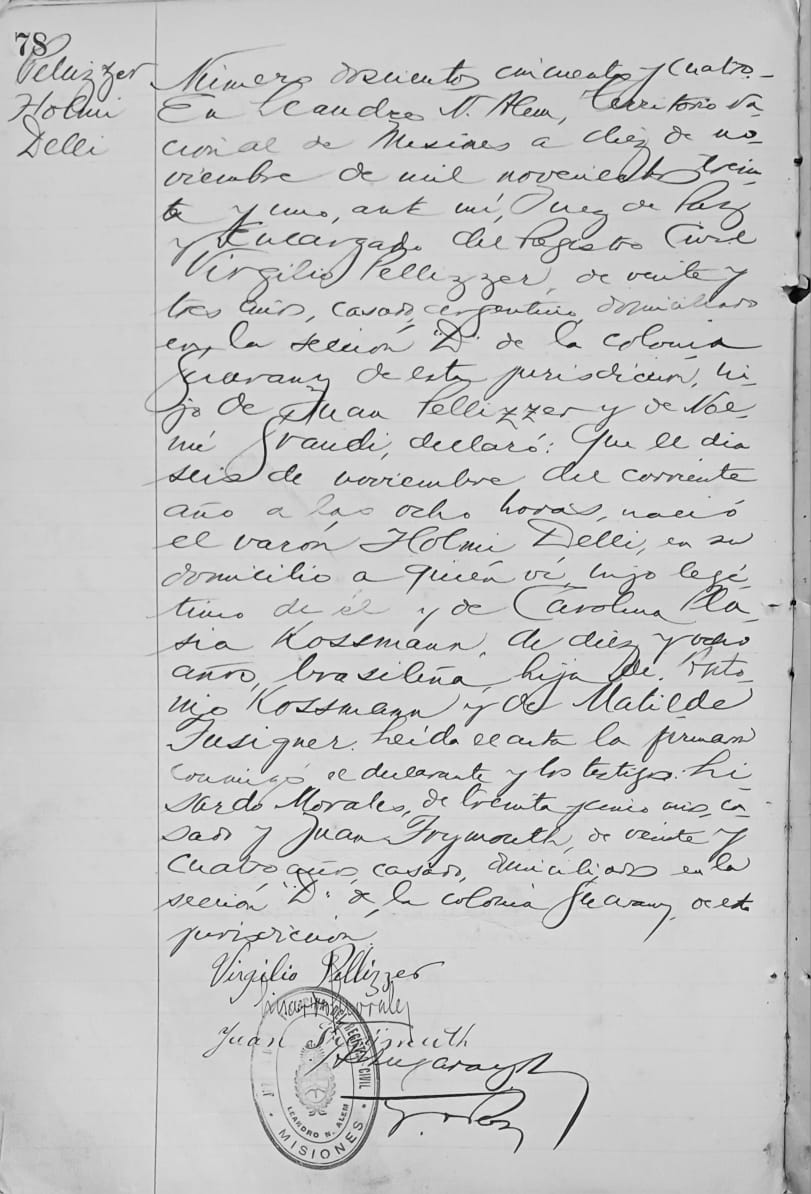 78
Pellizzer
Holmi
Delli
Número doscientos cincuenta y cuatro.—
En Leandro N. Alem, Territorio Na-
cional de Misiones a diez de no-
viembre de mil novecientos trein-
ta y uno, ante mí, Juez de Paz
y Encargado del Registro Civil
Virgilio Pellizzer, de veinte y
tres años, casado, argentino, domiciliado
en la sección "D" de la colonia
Guarany de esta jurisdicción, hi-
jo de Juan Pellizzer y de Noe-
mi Grandi, declaró: Que el día
seis de noviembre del corriente
año a las ocho horas, nació
el varón Holmi Delli, en su
domicilio a quién ví, hijo legí
timo de él y de Carolina
Kossmann, de diez y ocho
años, brasileña, hija de Anto-
nio Kossmann y de Matilde
Fusigner. Leída el acta la firman
conmigo el declarante y los testigos. Li
sardo Morales, de treinta y cinco años, ca-
sado y Juan Frymouth, de veinte y
cuatro años, casado, domiciliados en la
sección "D" de la colonia Guarany, de esta
jurisdicción
Virgilio Pellizzer
Morales
Juan
REGISTRO CIVIL
LEANDRO N. ALEM
MISIONES
J. de Paz